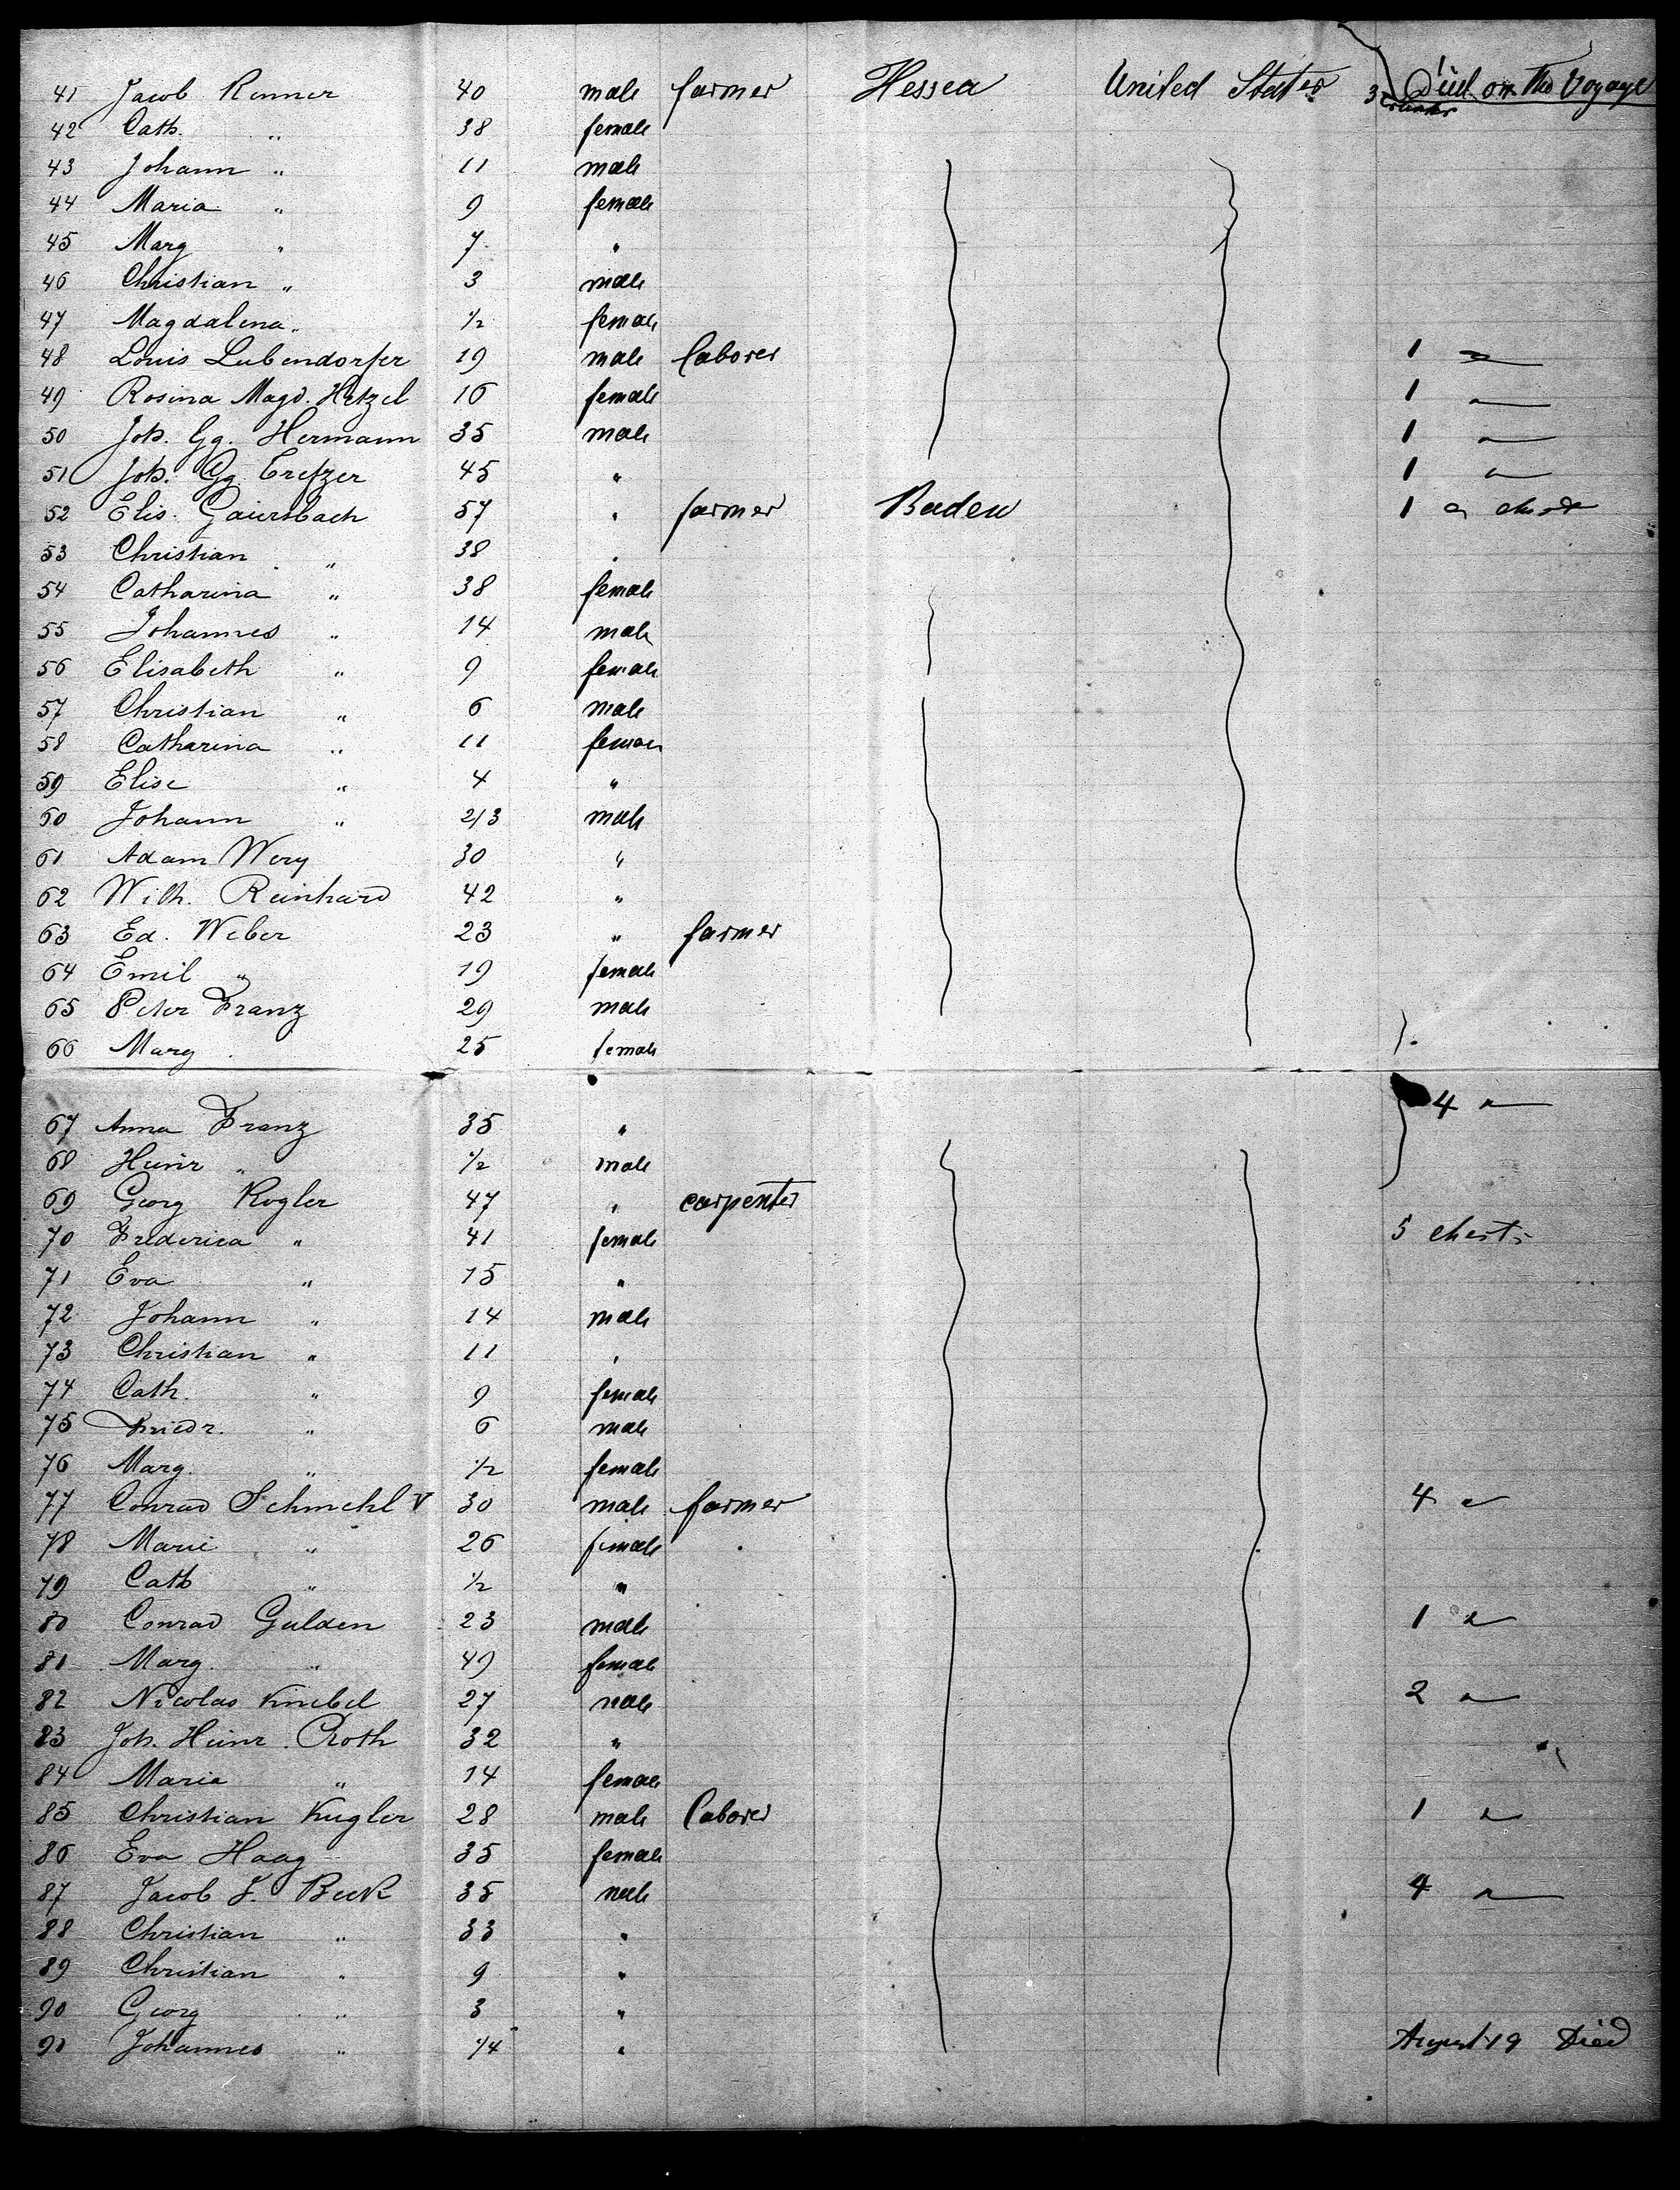 Died on the Voyage
41 Jacob Renner 40 male farmer Hessen United States 3
42 Cath. " 38 female
43 Johann " 11 male
44 Maria " 9 female
45 Marg " 7 "
46 Christian " 3 male
47 Magdalena " 1/2 female
48 Louis Lubendorfer 19 male laborer 1 "
49 Rosina Magd. Hetzel 16 female 1 "
50 Joh. Gg. Hermann 35 male 1 "
51 Joh. Gg. 45 " 1 "
52 Elis. Gaiersbach 57 " farmer Baden 1 a chest
53 Christian " 38 "
54 Catharina " 38 female
55 Johannes " 14 male
56 Elisabeth " 9 female
57 Christian " 6 male
58 Catharina " 11 female
59 Elise " 4 "
60 Johann " 2/3 male
61 Adam Wery 30 "
62 Wilh. Reinhard 42 "
63 Ed. Weber 23 " farmer
64 Emil " 19 female
65 Peter Franz 29 male
66 Marg 25 female
67 Anna Franz 35 " 4 "
68 Heinr " 1/2 male
69 Georg Kogler 47 " carpenter
70 Frederica " 41 female 5 chests
71 Eva " 15 "
72 Johann " 14 male
73 Christian " 11 "
74 Cath. " 9 female
75 Friedr. " 6 male
76 Marg. " 1/2 female
77 Conrad Schmehl V 30 male farmer 4 "
78 Marie " 26 female
79 Cath " 1/2 "
80 Conrad Gulden 23 male 1 "
81 Marg. " 49 female
82 Nicolas Knebel 27 male 2 "
83 Joh. Heinr. Croth 32 "
84 Maria " 14 female
85 Christian Kugler 28 male laborer 1 "
86 Eva Haag 35 female
87 Jacob F. Beck 35 male 4 "
88 Christian " 33 "
89 Christian " 9 "
90 Georg " 3 "
91 Johannes " 1/4 " August 19 Died